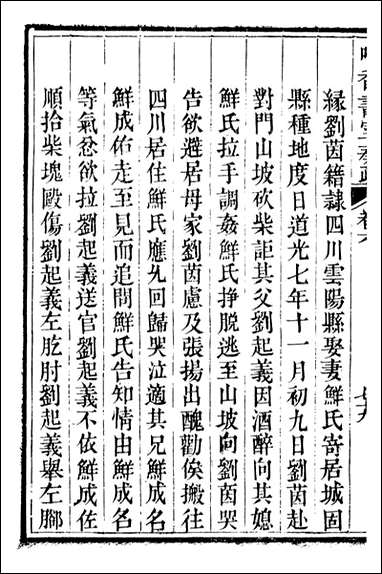 香書室奏疏 卷六
緣劉茵籍隸四川雲陽縣娶妻鮮氏寄居城固
縣種地度日道光七年十一月初九日劉茵赴
對門山坡砍柴詎其父劉起義因酒醉向其媳
鮮氏拉手調姦鮮氏掙脫逃至山坡向劉茵哭
告欲避居母家劉茵慮及張揚出醜勸俟搬往
四川居住鮮氏應允回歸哭泣適其兄鮮成名
鮮成佑走至見而追問鮮氏告知情由鮮成名
等氣忿欲拉劉起義送官劉起義不依鮮成佐
順拾柴塊毆傷劉起義左肐肘劉起義舉左腳